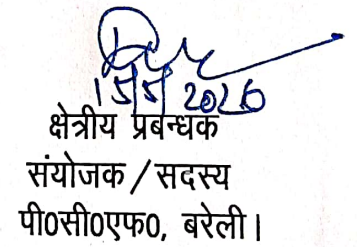 15/5/2026
क्षेत्रीय प्रबन्धक
संयोजक / सदस्य
पी0सी0एफ0, बरेली।